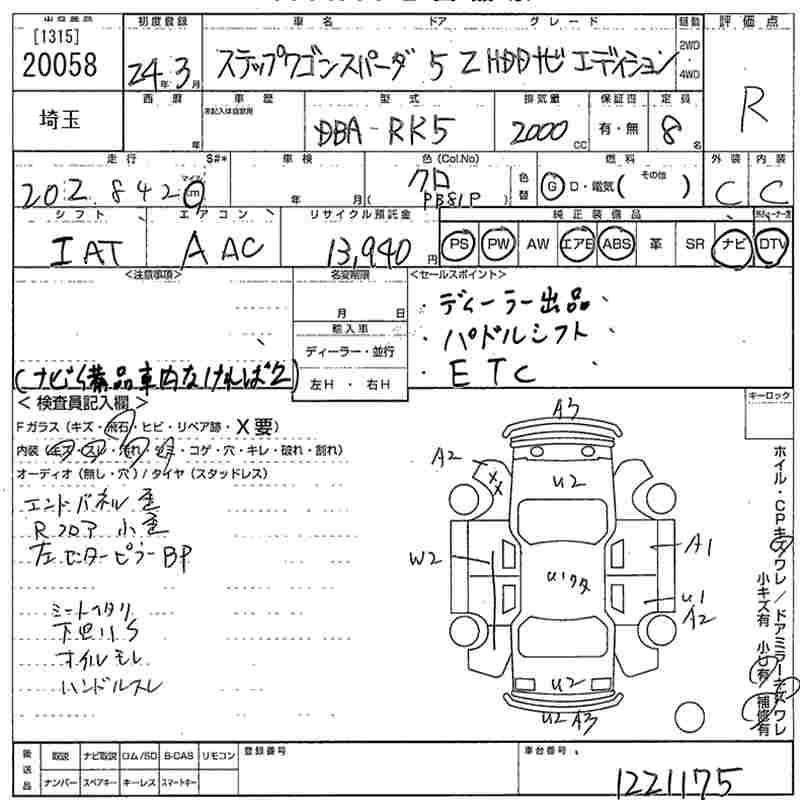 [1315]
20058
埼玉
初度登録
24年3月
車名 ドア グレード
ステップワゴンスパーダ 5 Z HDDナビ エディション
駆動
2WD
・
4WD
評価点
R
西暦
年
車歴
型式
DBA-RK5
排気量
2000 CC
保証書
有・無
定員
8名
走行
S#*
202,842
マイル
km
車検
年 月
色 (Col.No)
クロ
( PB81P )
色替
燃料
G・D・電気( その他 )
外装 内装
C C
シフト
IAT
エアコン
AAC
リサイクル預託金
13,940円
純正装備品
PS PW AW エアB ABS 革 SR ナビ DTV
<注意事項>
(ナビ備品車内なければ乙)
名変期限
月 日
輸入車
ディーラー・並行
左H ・ 右H
<セールスポイント>
・ディーラー出品
・パドルシフト
・ETC
キーロック
< 検査員記入欄 >
Fガラス (キズ・飛石・ヒビ・リペア跡・X要)
内装 (キズ・スレ・汚れ・シミ・コゲ・穴・キレ・破れ・割れ)
オーディオ (無し・穴) / タイヤ (スタッドレス)
エンドパネル歪
Rフロア 小歪
左センターピラーBP
シートヘタリ
下廻りS
オイルモレ
ハンドルスレ
A3
A2
XX
U2
W2
A1
U1
A2
U2
U2 A3
ホイル・CPキズワレ/ドアミラーキズワレ
小キズ有 小U有 補修有
後送品
取説 ナビ取説 ロム/SD B-CAS リモコン
ナンバー スペアキー キーレス スマートキー
登録番号
車台番号
1221175